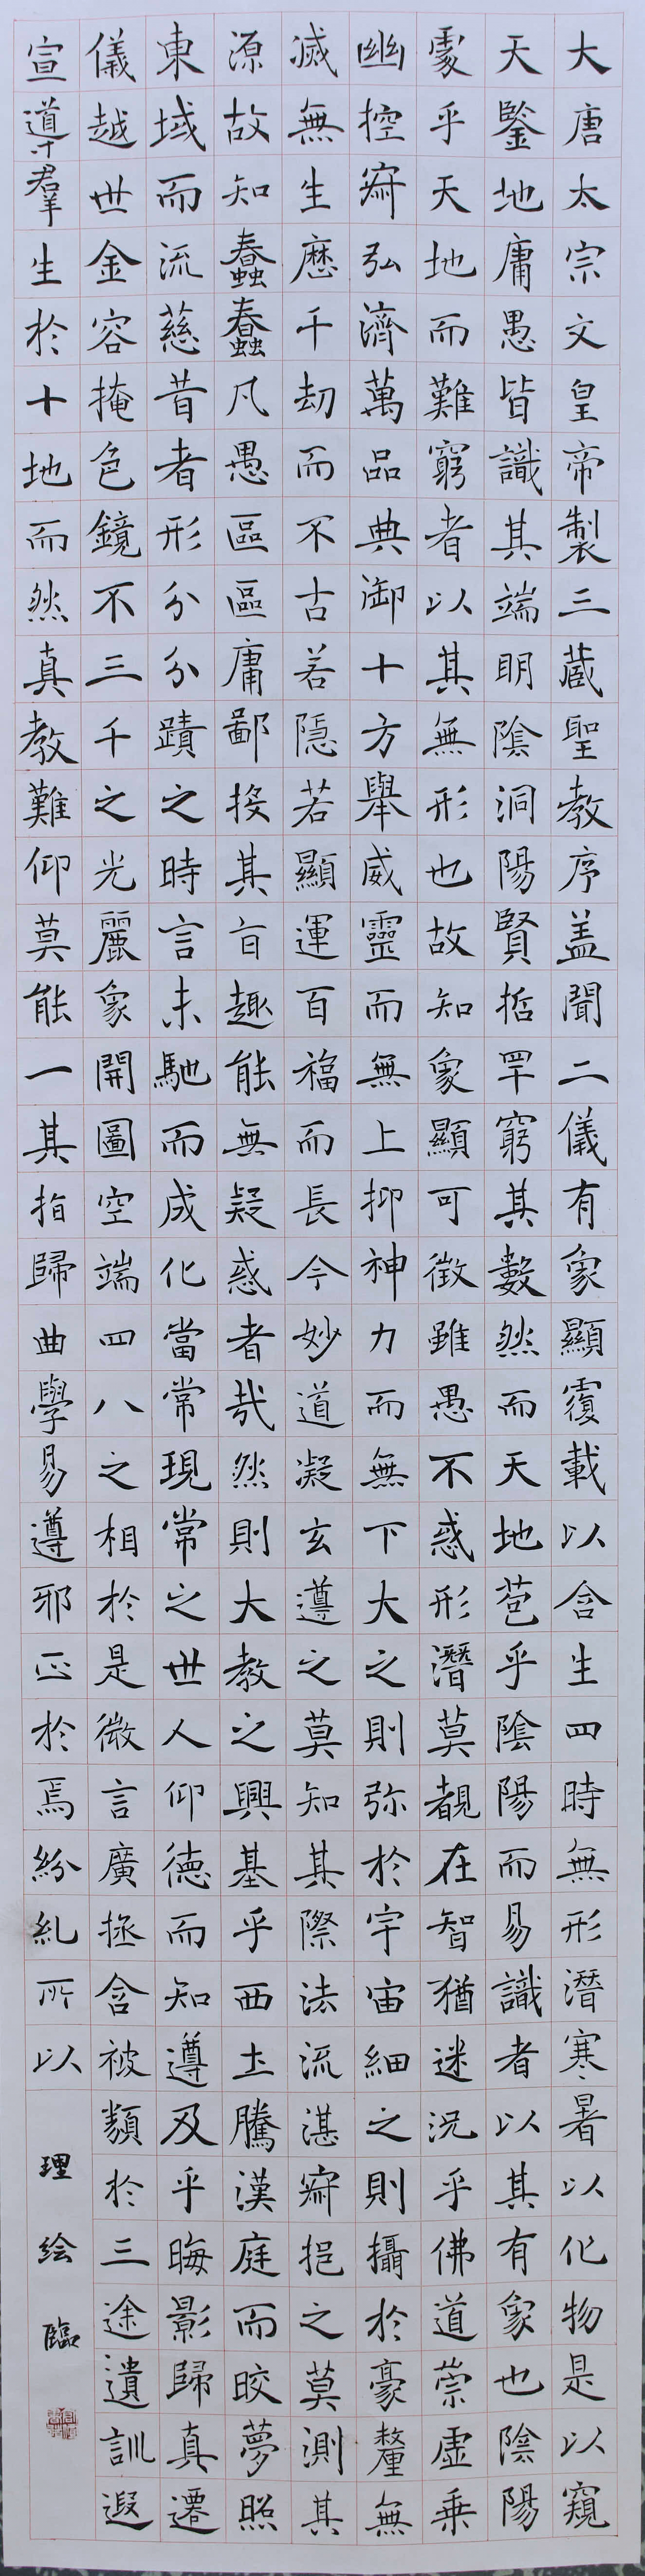 大唐太宗文皇帝製三藏聖教序盖聞二儀有象顯覆載以含生四時無形潛寒暑以化物是以窺
天鑒地庸愚皆識其端明陰洞陽賢哲罕窮其數然而天地苞乎陰陽而易識者以其有象也陰陽
處乎天地而難窮者以其無形也故知象顯可徵雖愚不惑形潛莫覩在智猶迷況乎佛道崇虛乘
幽控寂弘濟萬品典御十方舉威靈而無上抑神力而無下大之則弥於宇宙細之則攝於豪釐無
滅無生歷千劫而不古若隱若顯運百福而長今妙道凝玄遵之莫知其際法流湛寂挹之莫測其
源故知蠢蠢凡愚區區庸鄙投其旨趣能無疑惑者哉然則大教之興基乎西土騰漢庭而皎夢照
東域而流慈昔者形分分蹟之時言未馳而成化當常現常之世人仰德而知遵及乎晦影歸真遷
儀越世金容掩色鏡不三千之光麗象開圖空端四八之相於是微言廣拯含被類於三途遺訓遐
宣導羣生於十地而然真教難仰莫能一其指歸曲學易遵邪正於焉紛糺所以
理絵臨